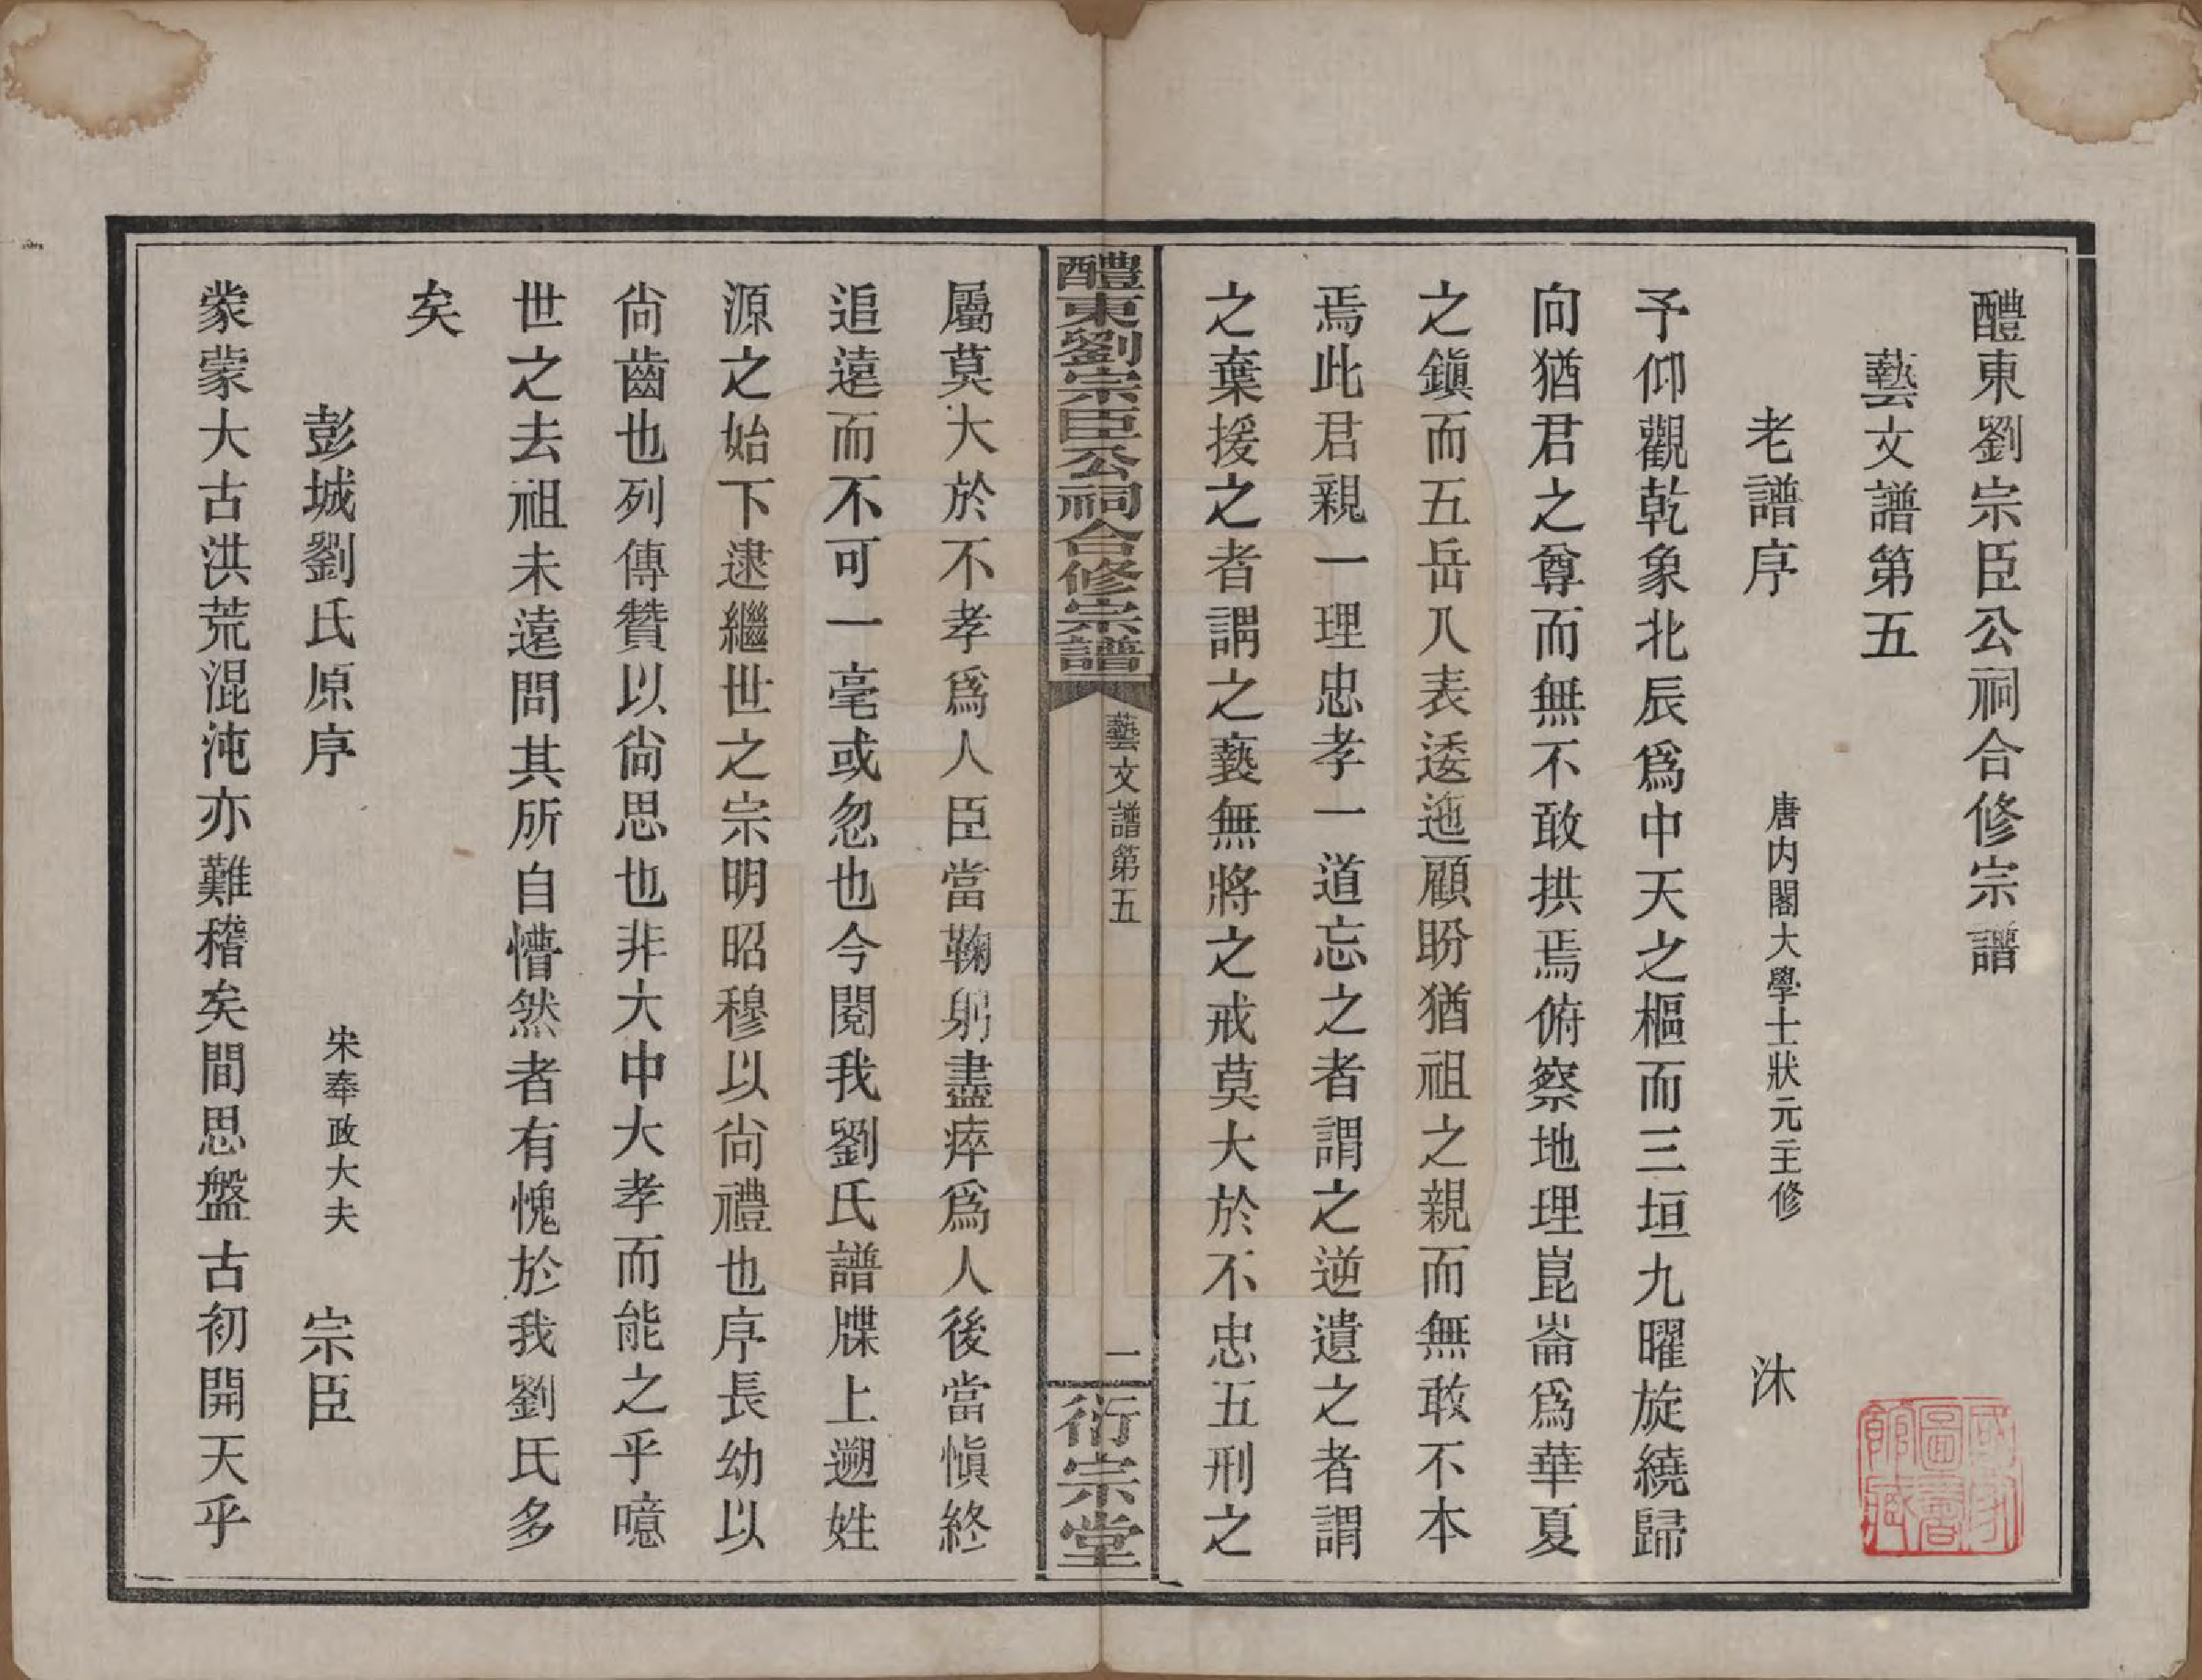 醴東劉宗臣公祠合修宗譜
藝文譜第五
老譜序　唐内閣大學士狀元主修　沐
予仰觀乾象北辰爲中天之樞而三垣九曜旋繞歸
向猶君之尊而無不敢拱焉俯察地理崑崙爲華夏
之鎭而五岳八表逶迤顧盼猶祖之親而無敢不本
焉此君親一理忠孝一道忘之者謂之逆遺之者謂
之棄援之者謂之褻無將之戒莫大於不忠五刑之
醴東劉宗臣公祠合修宗譜　藝文譜第五　一　衍宗堂
屬莫大於不孝爲人臣當鞠躬盡瘁爲人後當愼終
追遠而不可一毫或忽也今閱我劉氏譜牒上遡姓
源之始下逮繼世之宗明昭穆以尙禮也序長幼以
尙齒也列傳贊以尙思也非大中大孝而能之乎噫
世之去祖未遠問其所自懵然者有愧於我劉氏多
矣
彭城劉氏原序　宋奉政大夫　宗臣
蒙蒙大古洪荒混沌亦難稽矣間思盤古初開天乎
國家圖書館藏